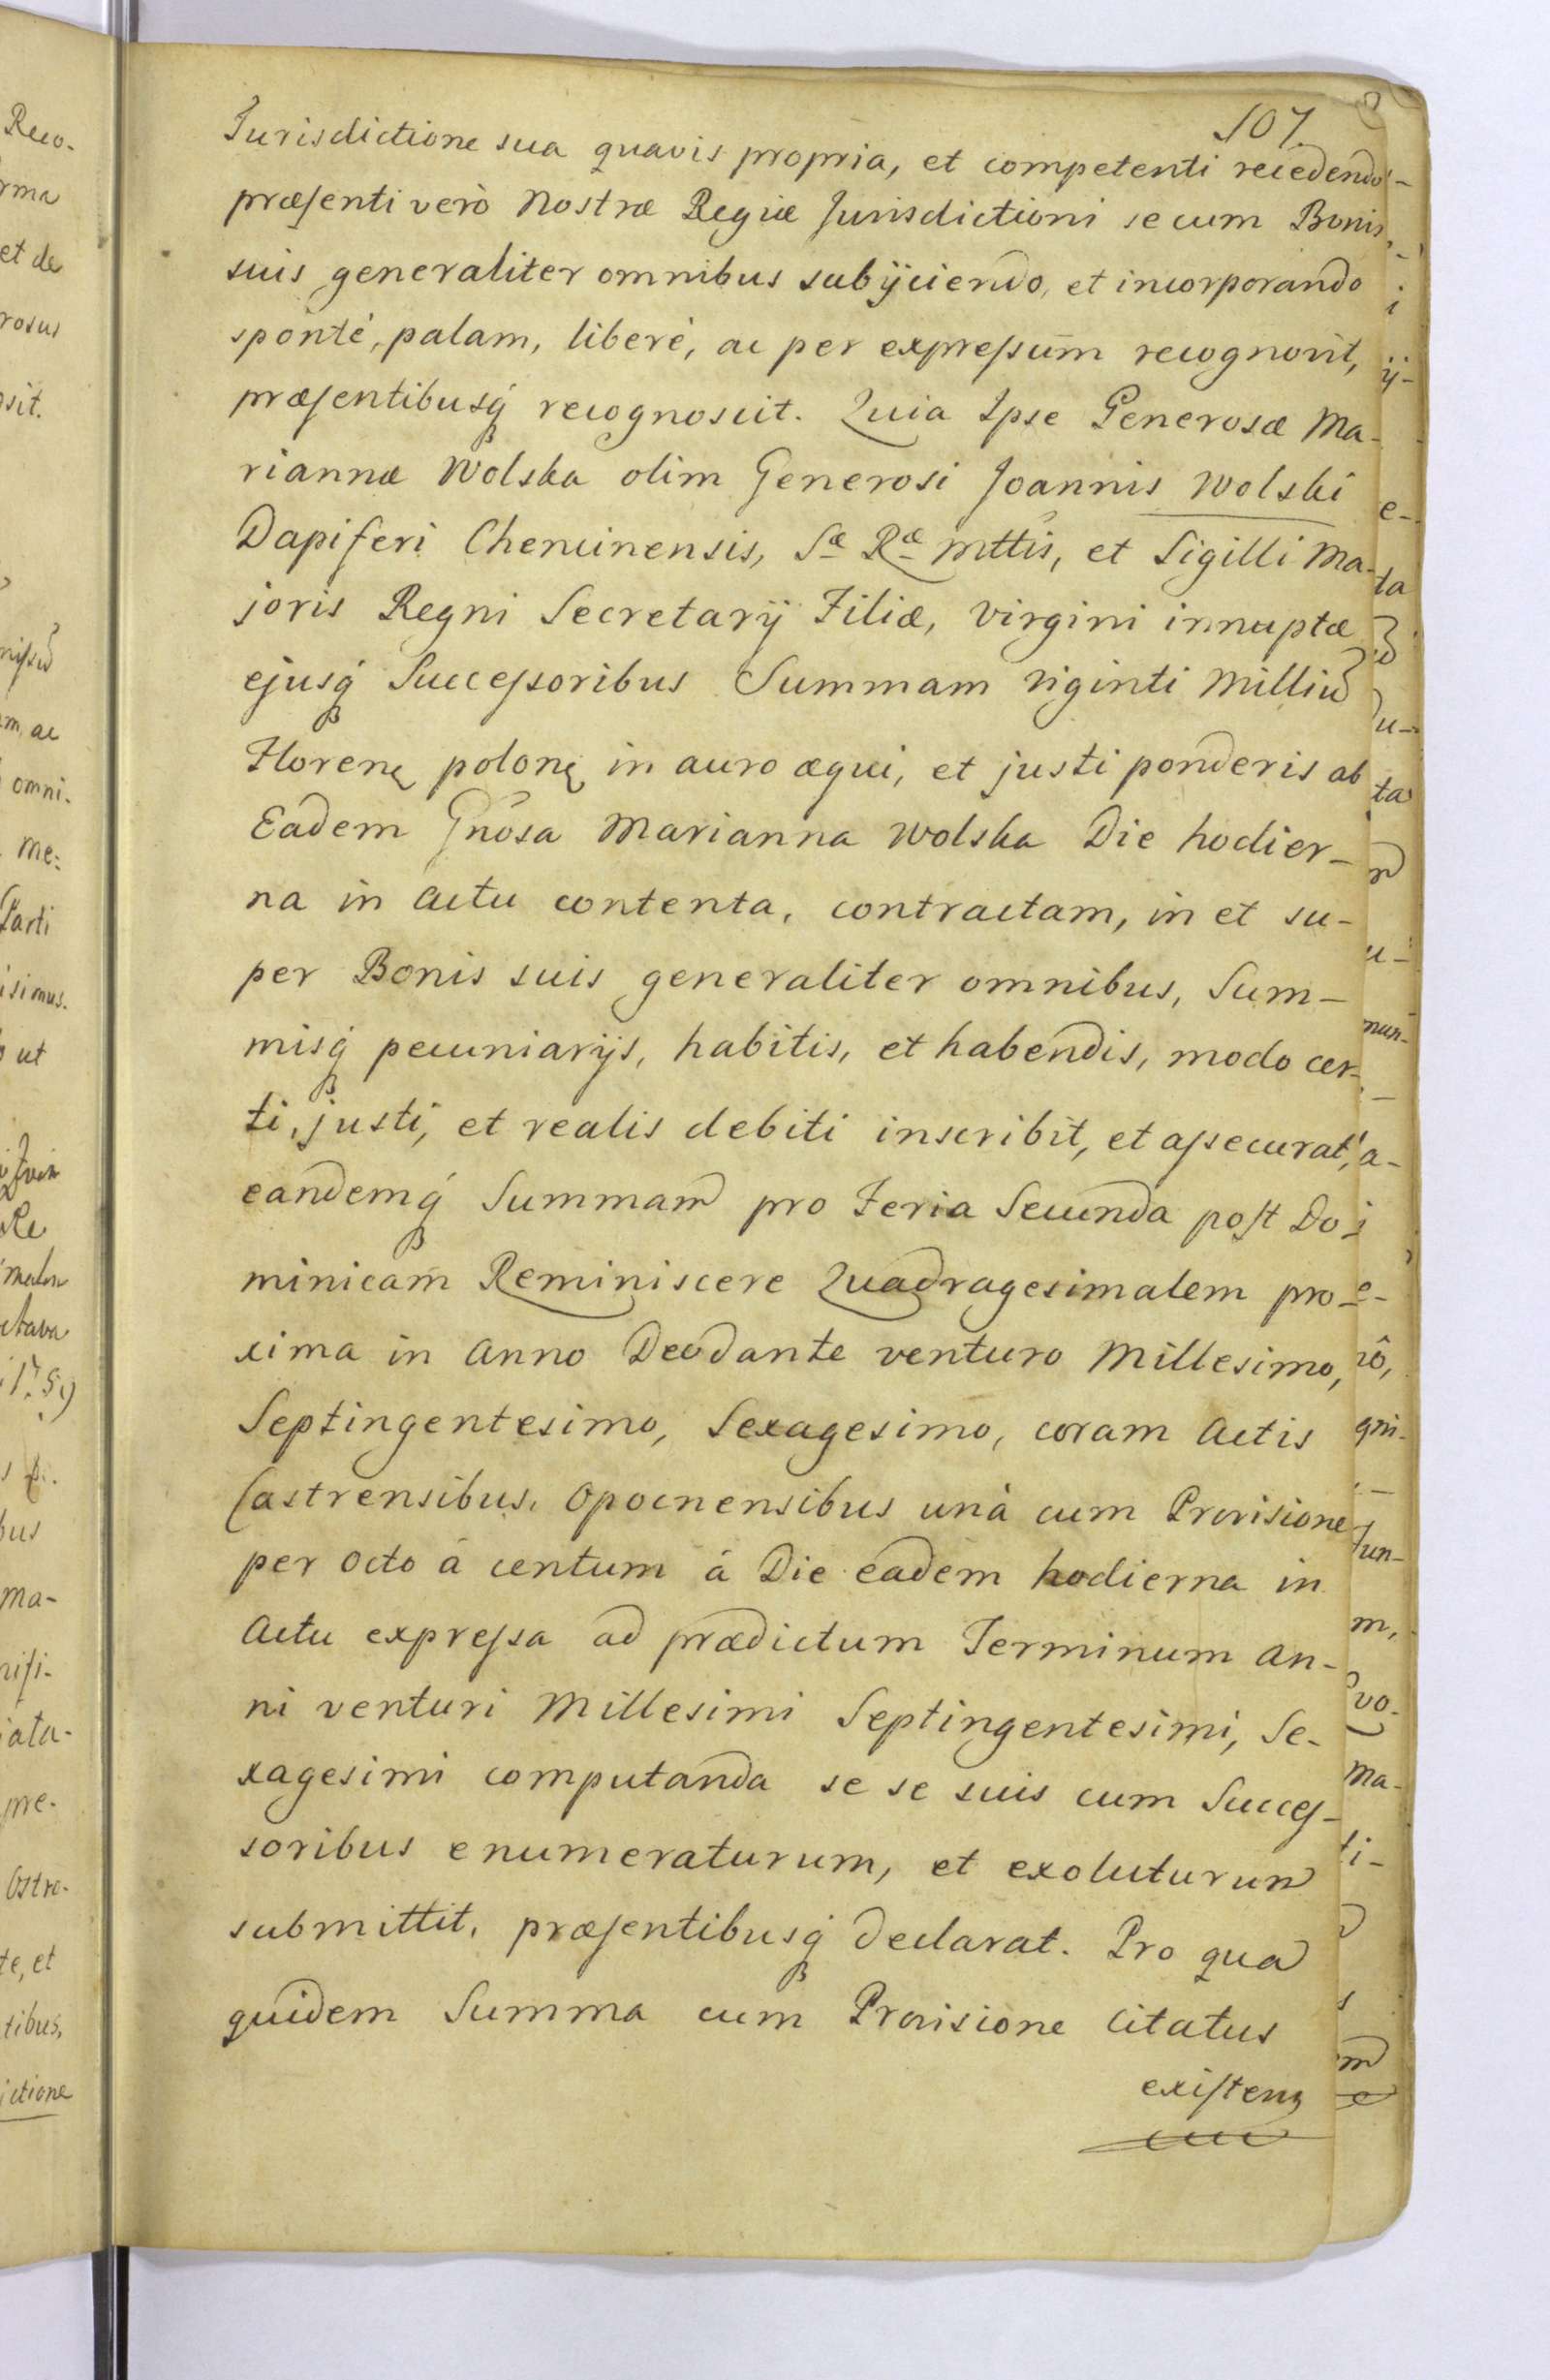 107.
Jurisdictione sua quavis propria, et competenti recedendo
præsenti verò Nostræ Regiæ Jurisdictioni se cum Bonis
suis generaliter omnibus subÿciendo, et incorporando
spontè, palam, liberè, ac per expressum recognovit,
præsentibusq́ recognoscit. Quia Ipse Generosæ Ma-
riannæ Wolska olim Generosi Joannis Wolski
Dapiferi Chencinensis, Sæ Ræ Mttis, et Sigilli Ma-
joris Regni Secretarÿ Filiæ, Virgini innuptæ
ejusq́ Successoribus Summam Viginti Milliū
Florenę polonę in auro æqui, et justi ponderis ab
Eadem Gnosa Marianna Wolska Die hodier-
na in Actu contenta, contractam, in et su-
per Bonis suis generaliter omnibus, Sum-
misq́ pecuniarÿs, habitis, et habendis, modo cer-
ti, justi, et realis debiti inscribit, et assecurat,
eandemq́ Summam pro Feria Secunda post Do-
minicam Reminiscere Quadragesimalem pro-
xima in Anno Deodante venturo Millesimo,
Septingentesimo, Sexagesimo, coram Actis
Castrensibus, Opocnensibus unà cum Provisione
per Octo á centum á Die eadem hodierna in
Actu expressa ad prædictum Terminum An-
ni venturi Millesimi Septingentesimi, Se-
xagesimi computanda se se suis cum Succes-
soribus enumeraturum, et exoluturum
submittit, præsentibusq́ declarat. Pro qua
quidem Summa cum Provisione Citatus
existens